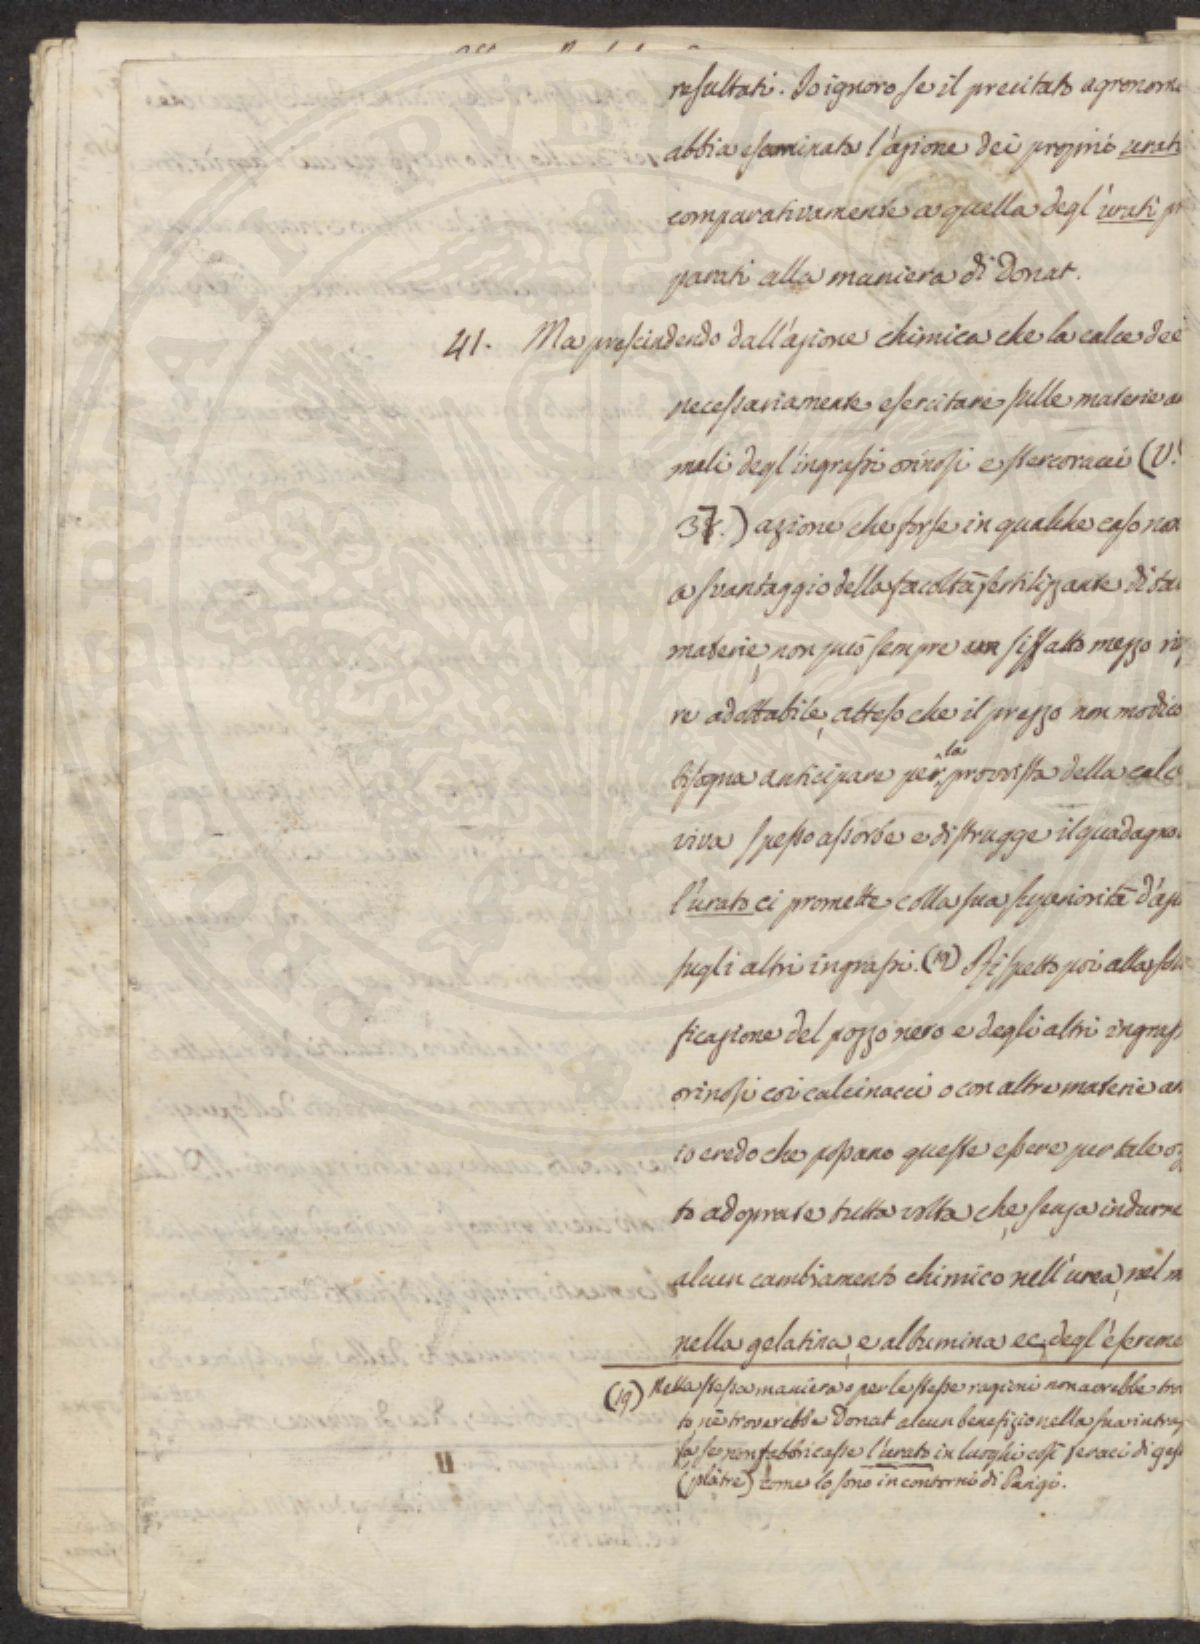 resultati. Io ignoro se il precitato agronomo
abbia esaminato l'azione dei proprii urati
comparativamente a quella degl'urati pr
parati alla maniera di Donat.
41. Ma prescindendo dall'azione chimica che la calce dee
necessariamente esercitare sulle materie a
mali degl'ingrassi orinosi e stercoracei (V.
37.) azione che forse in qualche caso non
a svantaggio della facoltà fertilizzante di ta
materie, non può sempre un siffatto mezzo ri
re adottabile, atteso che il prezzo non modico
bisogna anticipare per la provvista della calc
viva spesso assorbe e distrugge il guadagno
l'urato ci promette colla sua superiorità d'az
sugli altri ingrassi. (19) Rispetto poi alla sol
ficazione del pozzo nero e degli altri ingrass
orinosi coi calcinacci o con altre materie a
io credo che possano queste essere per tale og
to adoprate tutta volta che, senza indurre
alcun cambiamento chimico nell'urea, nel m
nella gelatina, e albumina ec. degl'escreme
(19) Nella stessa maniera e per le stesse ragioni non avrebbe tro
to nè troverebbe Donat alcun benefizio nella sua intra
sa se non fabbricasse l'urato in luoghi così feraci di ges
(plâtre) come lo sono i contorni di Parigi.